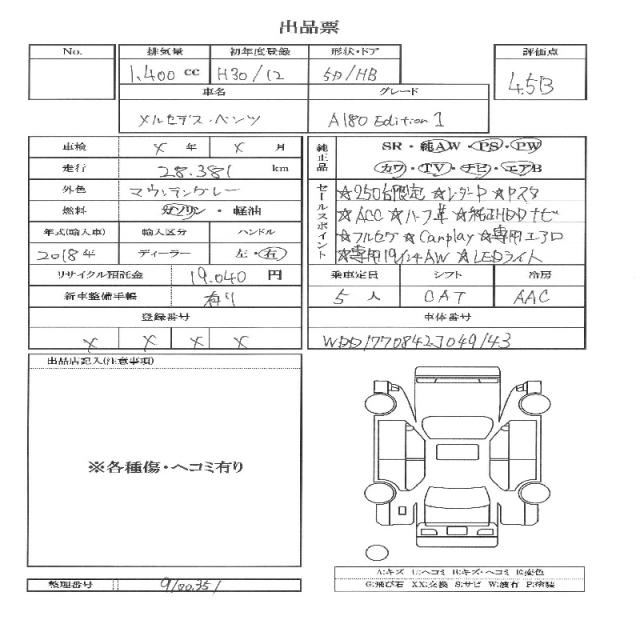 出品票
No. 排気量 初年度登録 形状・ドア 評価点
1,400 cc H30/12 5D/HB 4.5B
車名 グレード
メルセデス・ベンツ A180 Edition 1
車検 × 年 × 月
走行 28.381 km
外色 マウンテングレー
燃料 ガソリン・軽油
年式(輸入車) 輸入区分 ハンドル
2018年 ディーラー 左・右
リサイクル預託金 19.040 円
新車整備手帳 有り
登録番号
× × × ×
純正品
SR・純AW・PS・PW
カワ・TV・ナビ・エアB
セールスポイント
☆250台限定 ☆レダーP ☆Pスタ
☆ACC ☆ハーフ革 ☆純正HDDナビ
☆フルセグ ☆Carplay ☆専用エアロ
☆専用19インチAW ☆LEDライト
乗車定員 シフト 冷房
5 人 CAT AAC
車体番号
WDD1770842J049143
出品店記入(注意事項)
※各種傷・ヘコミ有り
整理番号
A:キズ U:ヘコミ B:キズ・ヘコミ E:変色
G:飛び石 XX:交換 S:サビ W:波有 P:塗装